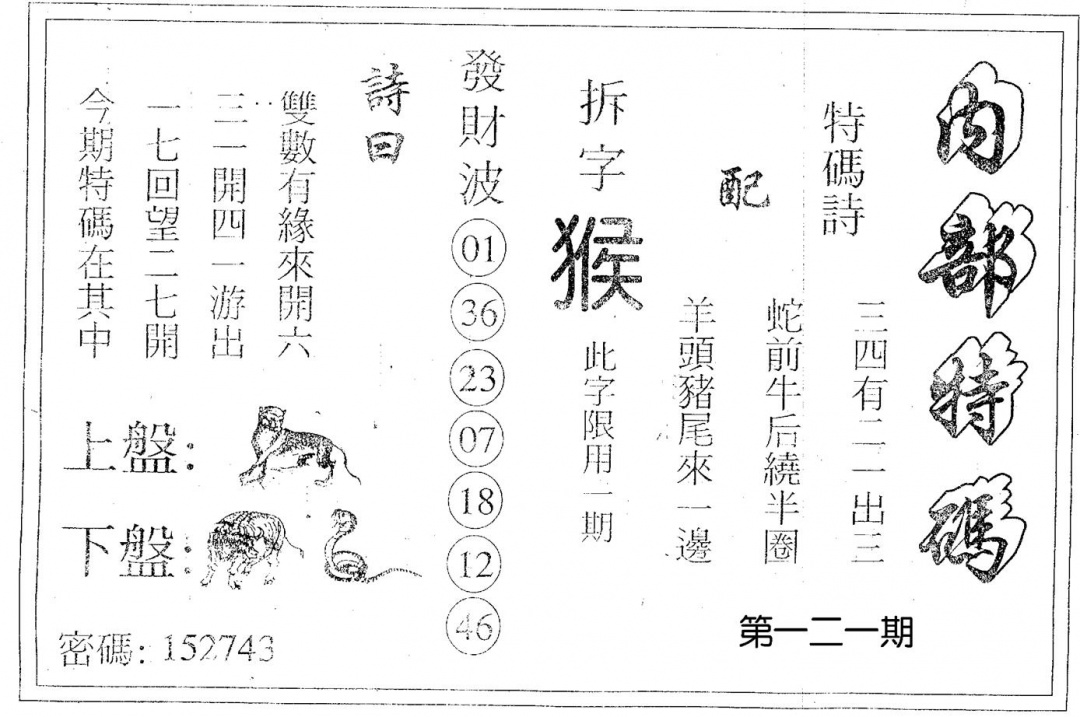 內部特碼
特碼詩
三四有二一出三
蛇前牛后繞半圈
配
羊頭豬尾來一邊
拆字
猴
此字限用一期
第一二一期
發財波
01
36
23
07
18
12
46
詩曰
雙數有緣來開六
三一開四一游出
一七回望二七開
今期特碼在其中
上盤:
下盤:
密碼: 152743